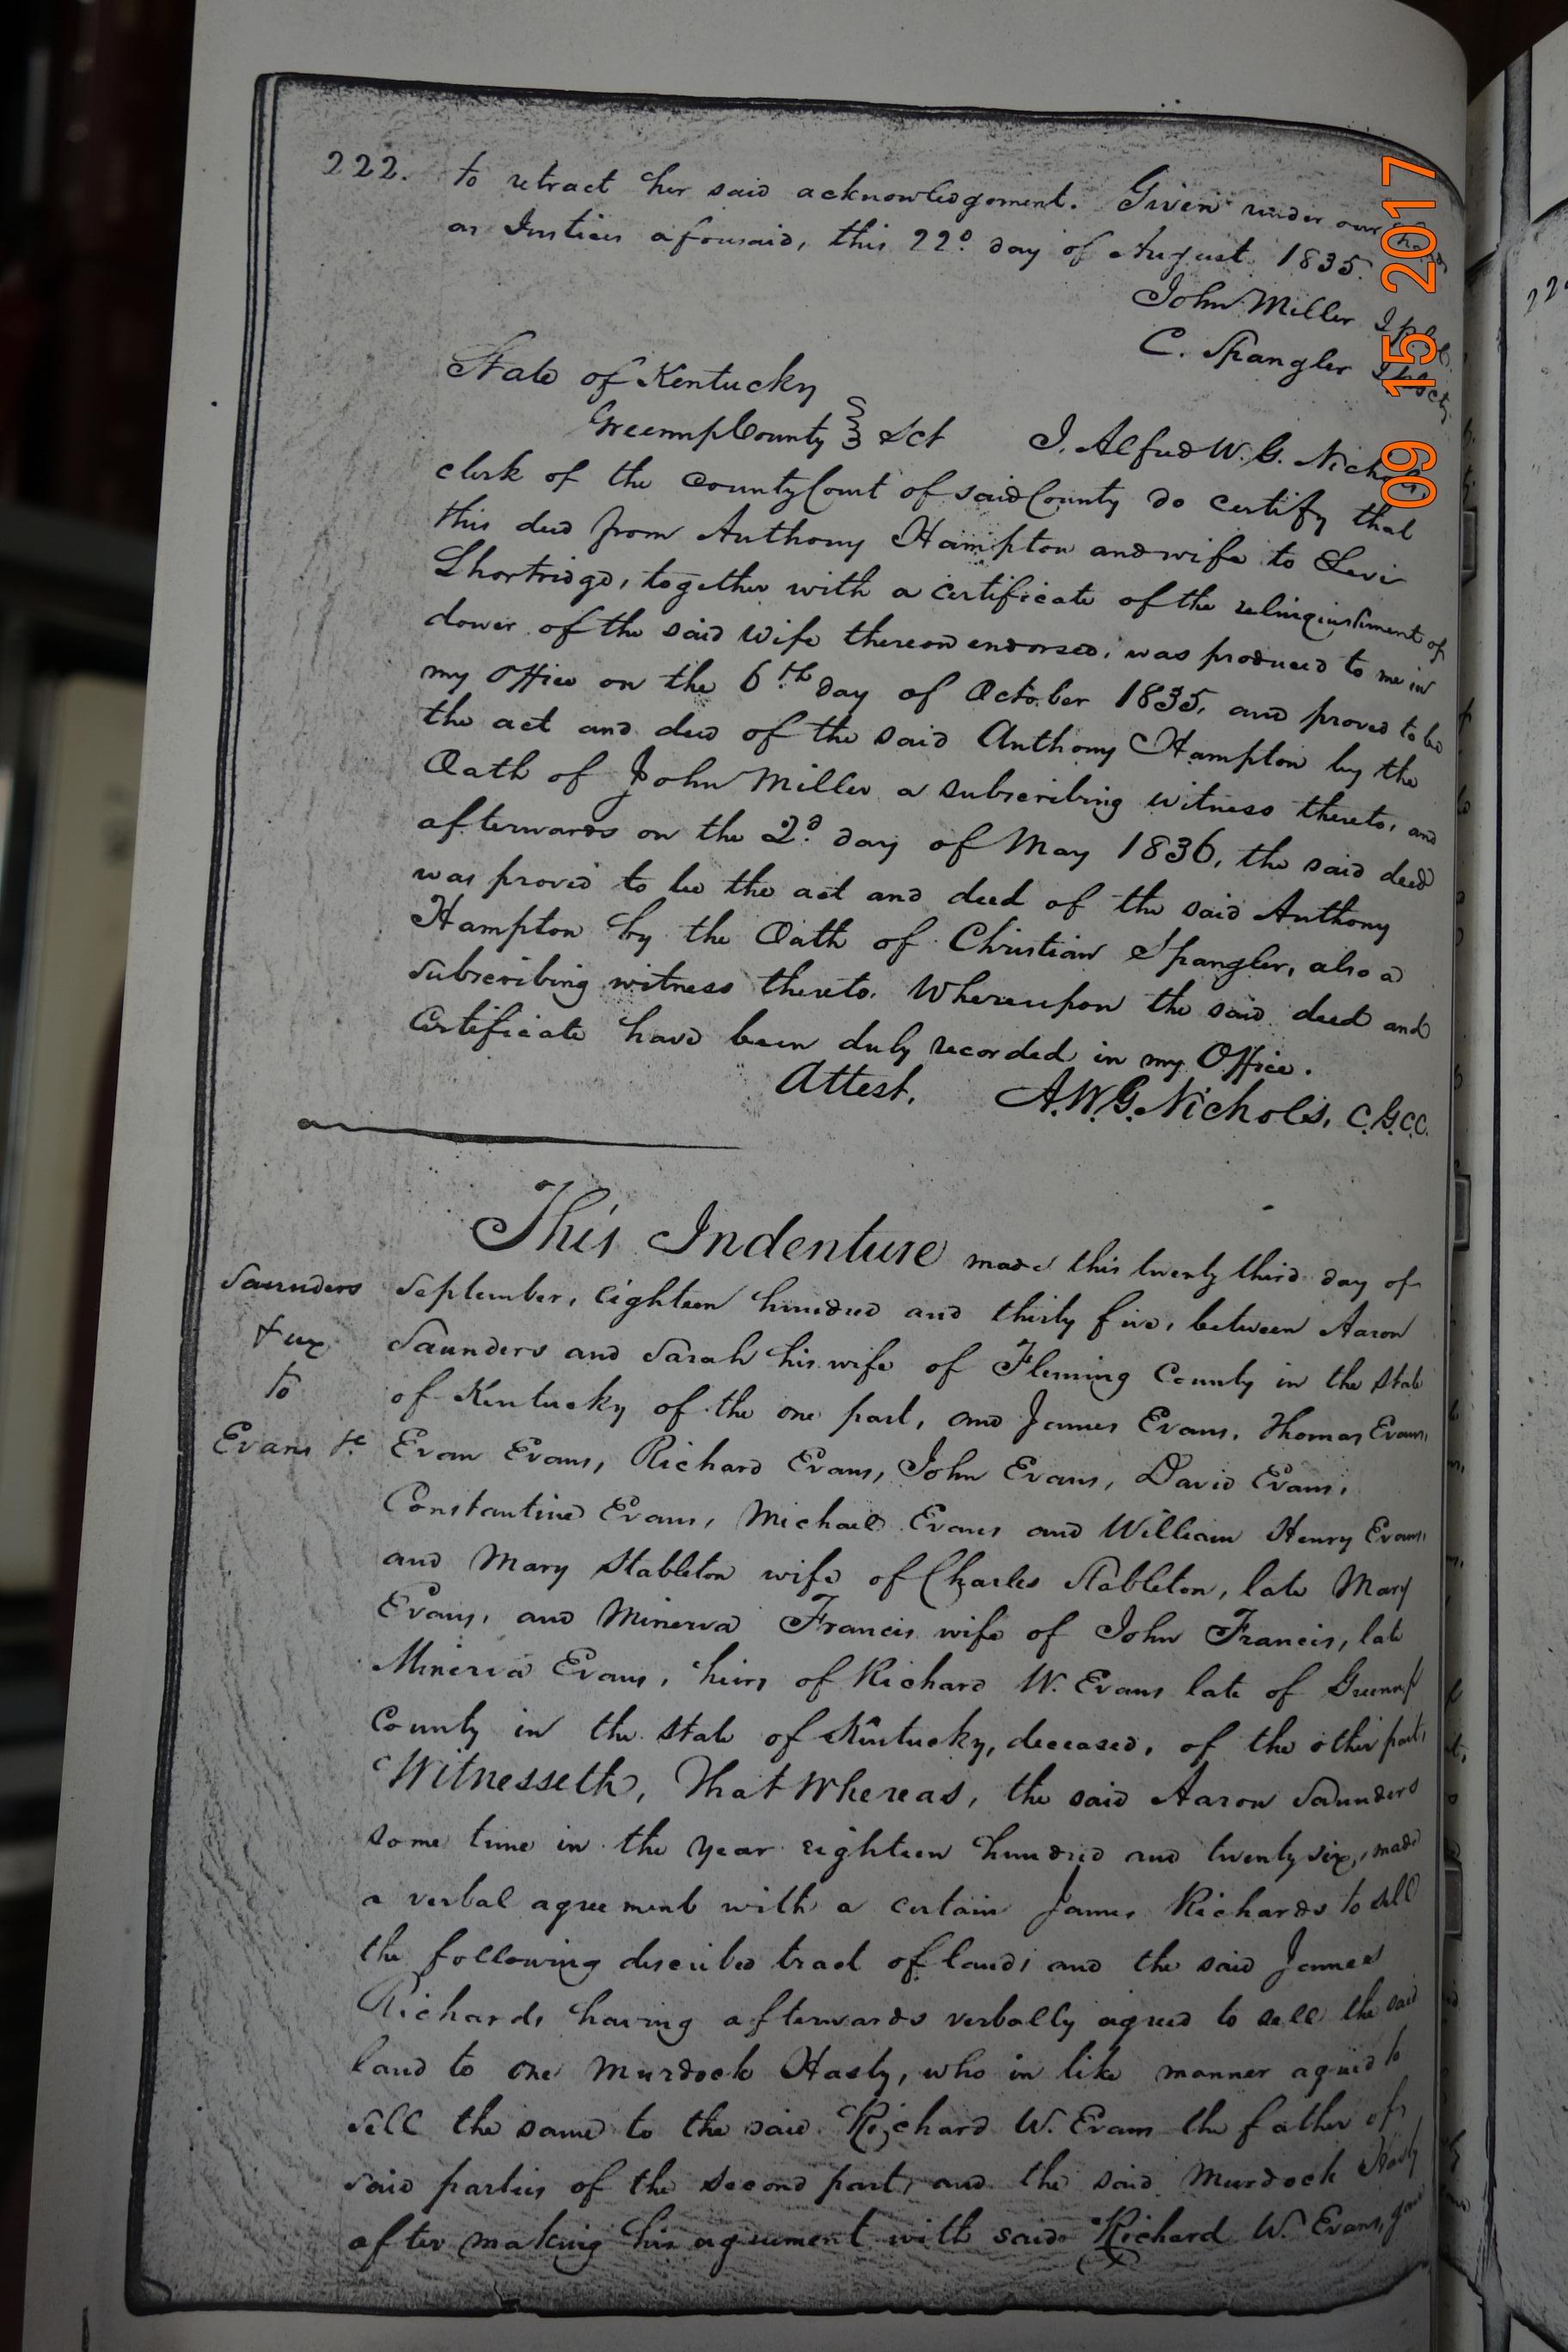 222. to retract her said acknowledgement. Given under our hands
as Justices aforesaid, this 22d day of August 1835.
John Miller
C. Spangler
State of Kentucky
Greenup County Sct I, Alfred W. G. Nichols,
clerk of the County Court of said County do certify that
this deed from Anthony Hampton and wife to Levi
Shortridge, together with a certificate of the relinquishment of
dower of the said wife thereon endorsed, was produced to me in
my office on the 6th day of October 1835, and proved to be
the act and deed of the said Anthony Hampton by the
Oath of John Miller a subscribing witness thereto, and
afterwards on the 2d day of May 1836, the said deed
was proved to be the act and deed of the said Anthony
Hampton by the Oath of Christian Spangler, also a
subscribing witness thereto. Whereupon the said deed and
Certificate have been duly recorded in my Office.
Attest, A.W.G. Nichols, C.G.C.C.
This Indenture made this twenty third day of
Saunders September, eighteen hundred and thirty five, between Aaron
& ux Saunders and Sarah his wife of Fleming County in the State
to of Kentucky of the one part, and James Evans, Thomas Evans,
Evans &c Evan Evans, Richard Evans, John Evans, David Evans,
Constantine Evans, Michael Evans and William Henry Evans,
and Mary Stableton wife of Charles Stableton, late Mary
Evans, and Minerva Francis wife of John Francis, late
Minerva Evans, heirs of Richard W. Evans late of Greenup
County in the State of Kentucky, deceased, of the other part,
Witnesseth, That Whereas, the said Aaron Saunders
some time in the year eighteen hundred and twenty six, made
a verbal agreement with a certain James Richards to sell
the following described tract of land; and the said James
Richards having afterwards verbally agreed to sell the said
land to one Murdock Hasty, who in like manner agreed to
sell the same to the said Richard W. Evans the father of
said parties of the second part, and the said Murdock Hasty
after making his agreement with said Richard W. Evans,
09 15 2017